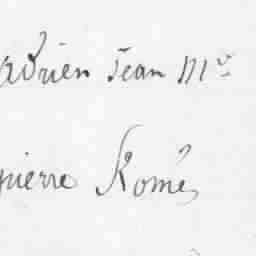 Adrien Jean Mie
pierre Romé